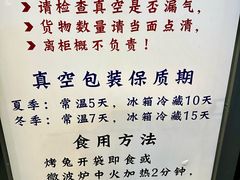 请检查真空是否漏气，
货物数量请当面点清，
离柜概不负责！
真空包装保质期
夏季：常温5天，冰箱冷藏10天
冬季：常温7天，冰箱冷藏15天
食用方法
烤兔开袋即食或
微波炉中火加热2分钟，